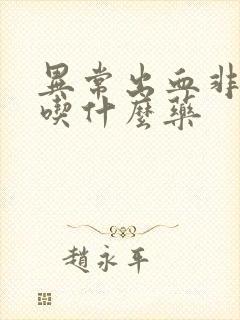 異常出血非
喫什麼藥
趙永平